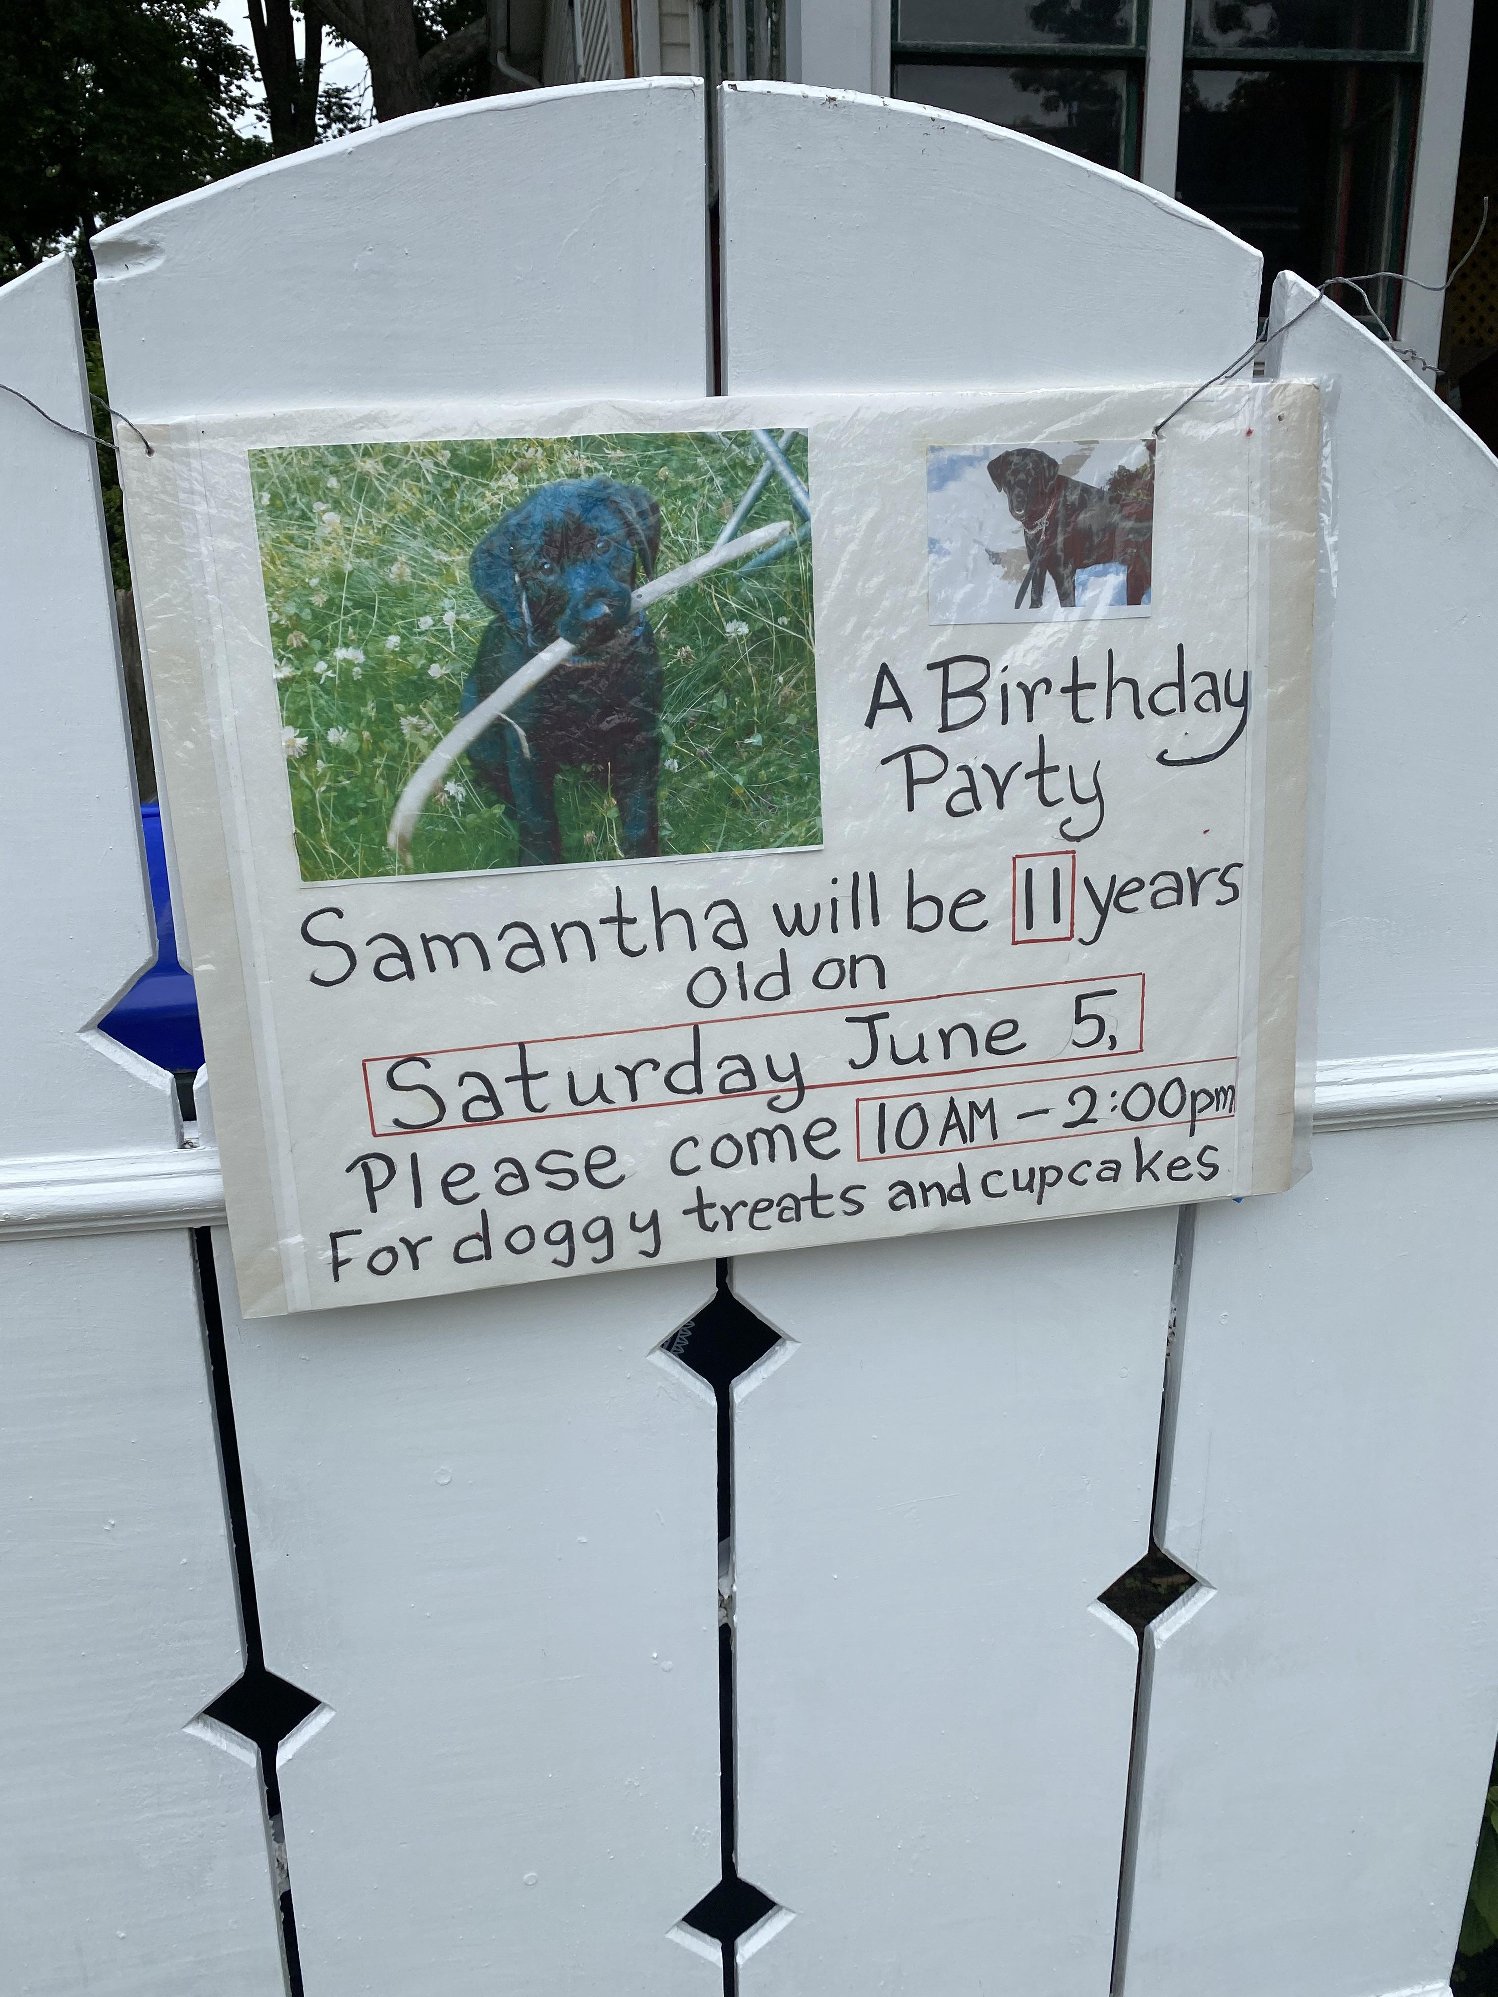 A Birthday
Party
Samantha will be 11 years
old on
Saturday June 5,
Please come 10AM - 2:00pm
For doggy treats and cupcakes